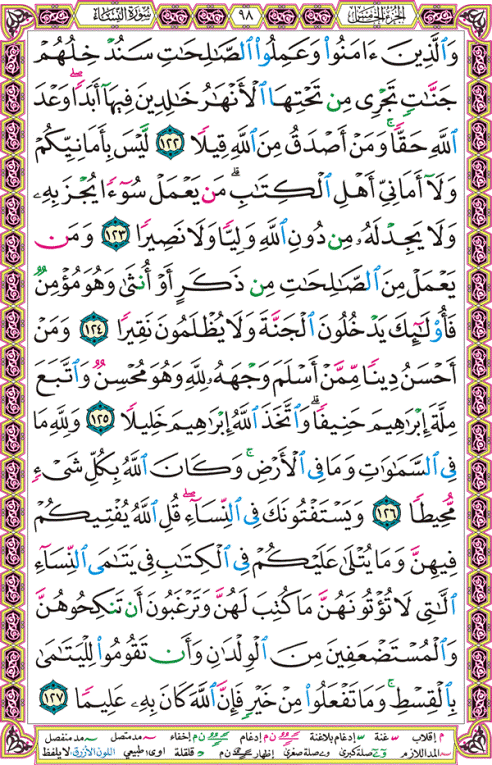 الجزء الخامس ٩٨ سورة النساء
وَالَّذِينَ ءَامَنُوا وَعَمِلُوا الصَّالِحَاتِ سَنُدْخِلُهُمْ
جَنَّاتٍ تَجْرِى مِن تَحْتِهَا الْأَنْهَارُ خَالِدِينَ فِيهَا أَبَدًا وَعْدَ
اللَّهِ حَقًّا وَمَنْ أَصْدَقُ مِنَ اللَّهِ قِيلًا ١٢٢ لَّيْسَ بِأَمَانِيِّكُمْ
وَلَا أَمَانِىِّ أَهْلِ الْكِتَابِ مَن يَعْمَلْ سُوءًا يُجْزَ بِهِ
وَلَا يَجِدْ لَهُ مِن دُونِ اللَّهِ وَلِيًّا وَلَا نَصِيرًا ١٢٣ وَمَن
يَعْمَلْ مِنَ الصَّالِحَاتِ مِن ذَكَرٍ أَوْ أُنثَى وَهُوَ مُؤْمِنٌ
فَأُولَئِكَ يَدْخُلُونَ الْجَنَّةَ وَلَا يُظْلَمُونَ نَقِيرًا ١٢٤ وَمَنْ
أَحْسَنُ دِينًا مِّمَّنْ أَسْلَمَ وَجْهَهُ لِلَّهِ وَهُوَ مُحْسِنٌ وَاتَّبَعَ
مِلَّةَ إِبْرَاهِيمَ حَنِيفًا وَاتَّخَذَ اللَّهُ إِبْرَاهِيمَ خَلِيلًا ١٢٥ وَلِلَّهِ مَا
فِى السَّمَاوَاتِ وَمَا فِى الْأَرْضِ وَكَانَ اللَّهُ بِكُلِّ شَىْءٍ
مُّحِيطًا ١٢٦ وَيَسْتَفْتُونَكَ فِى النِّسَاءِ قُلِ اللَّهُ يُفْتِيكُمْ
فِيهِنَّ وَمَا يُتْلَى عَلَيْكُمْ فِى الْكِتَابِ فِى يَتَامَى النِّسَاءِ
الَّتِى لَا تُؤْتُونَهُنَّ مَا كُتِبَ لَهُنَّ وَتَرْغَبُونَ أَن تَنكِحُوهُنَّ
وَالْمُسْتَضْعَفِينَ مِنَ الْوِلْدَانِ وَأَن تَقُومُوا لِلْيَتَامَى
بِالْقِسْطِ وَمَا تَفْعَلُوا مِنْ خَيْرٍ فَإِنَّ اللَّهَ كَانَ بِهِ عَلِيمًا ١٢٧
م إقلاب غنة إدغام بلاغنة ن م إدغام ن م إخفاء مد متصل مد منفصل
المد اللازم صلة كبرى صلة صغرى إظهار ن م قلقلة اوى: طبيعي اللون الأزرق: لا يلفظ